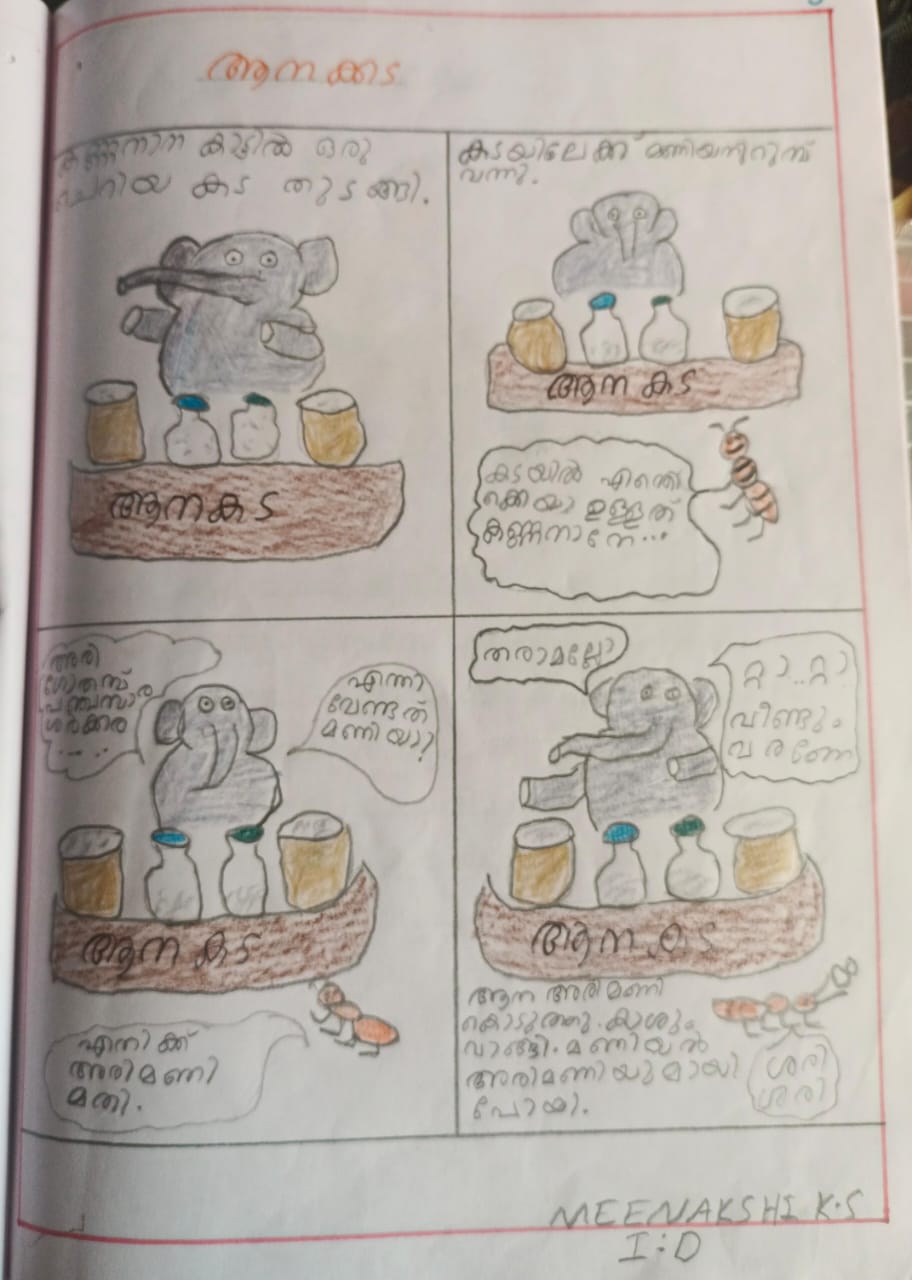 ആനക്കട
കണ്ണനാന കാട്ടിൽ ഒരു
ചെറിയ കട തുടങ്ങി.
ആനകട
കടയിലേക്ക് മണിയനുറുമ്പ്
വന്നു.
ആന കട
കടയിൽ എന്തൊ
ക്കെയാ ഉള്ളത്
കണ്ണനാനേ...
അരി
ഗോതമ്പ്
പഞ്ചസാര
ശർക്കര
....
എന്താ
വേണ്ടത്
മണിയാ?
ആന കട
എനിക്ക്
അരിമണി
മതി.
തരാമല്ലോ
റ്റാ..റ്റാ
വീണ്ടും
വരണേ
ആന കട
ആന അരിമണി
കൊടുത്തു. കാശും
വാങ്ങി. മണിയൻ
അരിമണിയുമായി
പോയി.
ശരി
ശരി
MEENAKSHI K.S
I:D